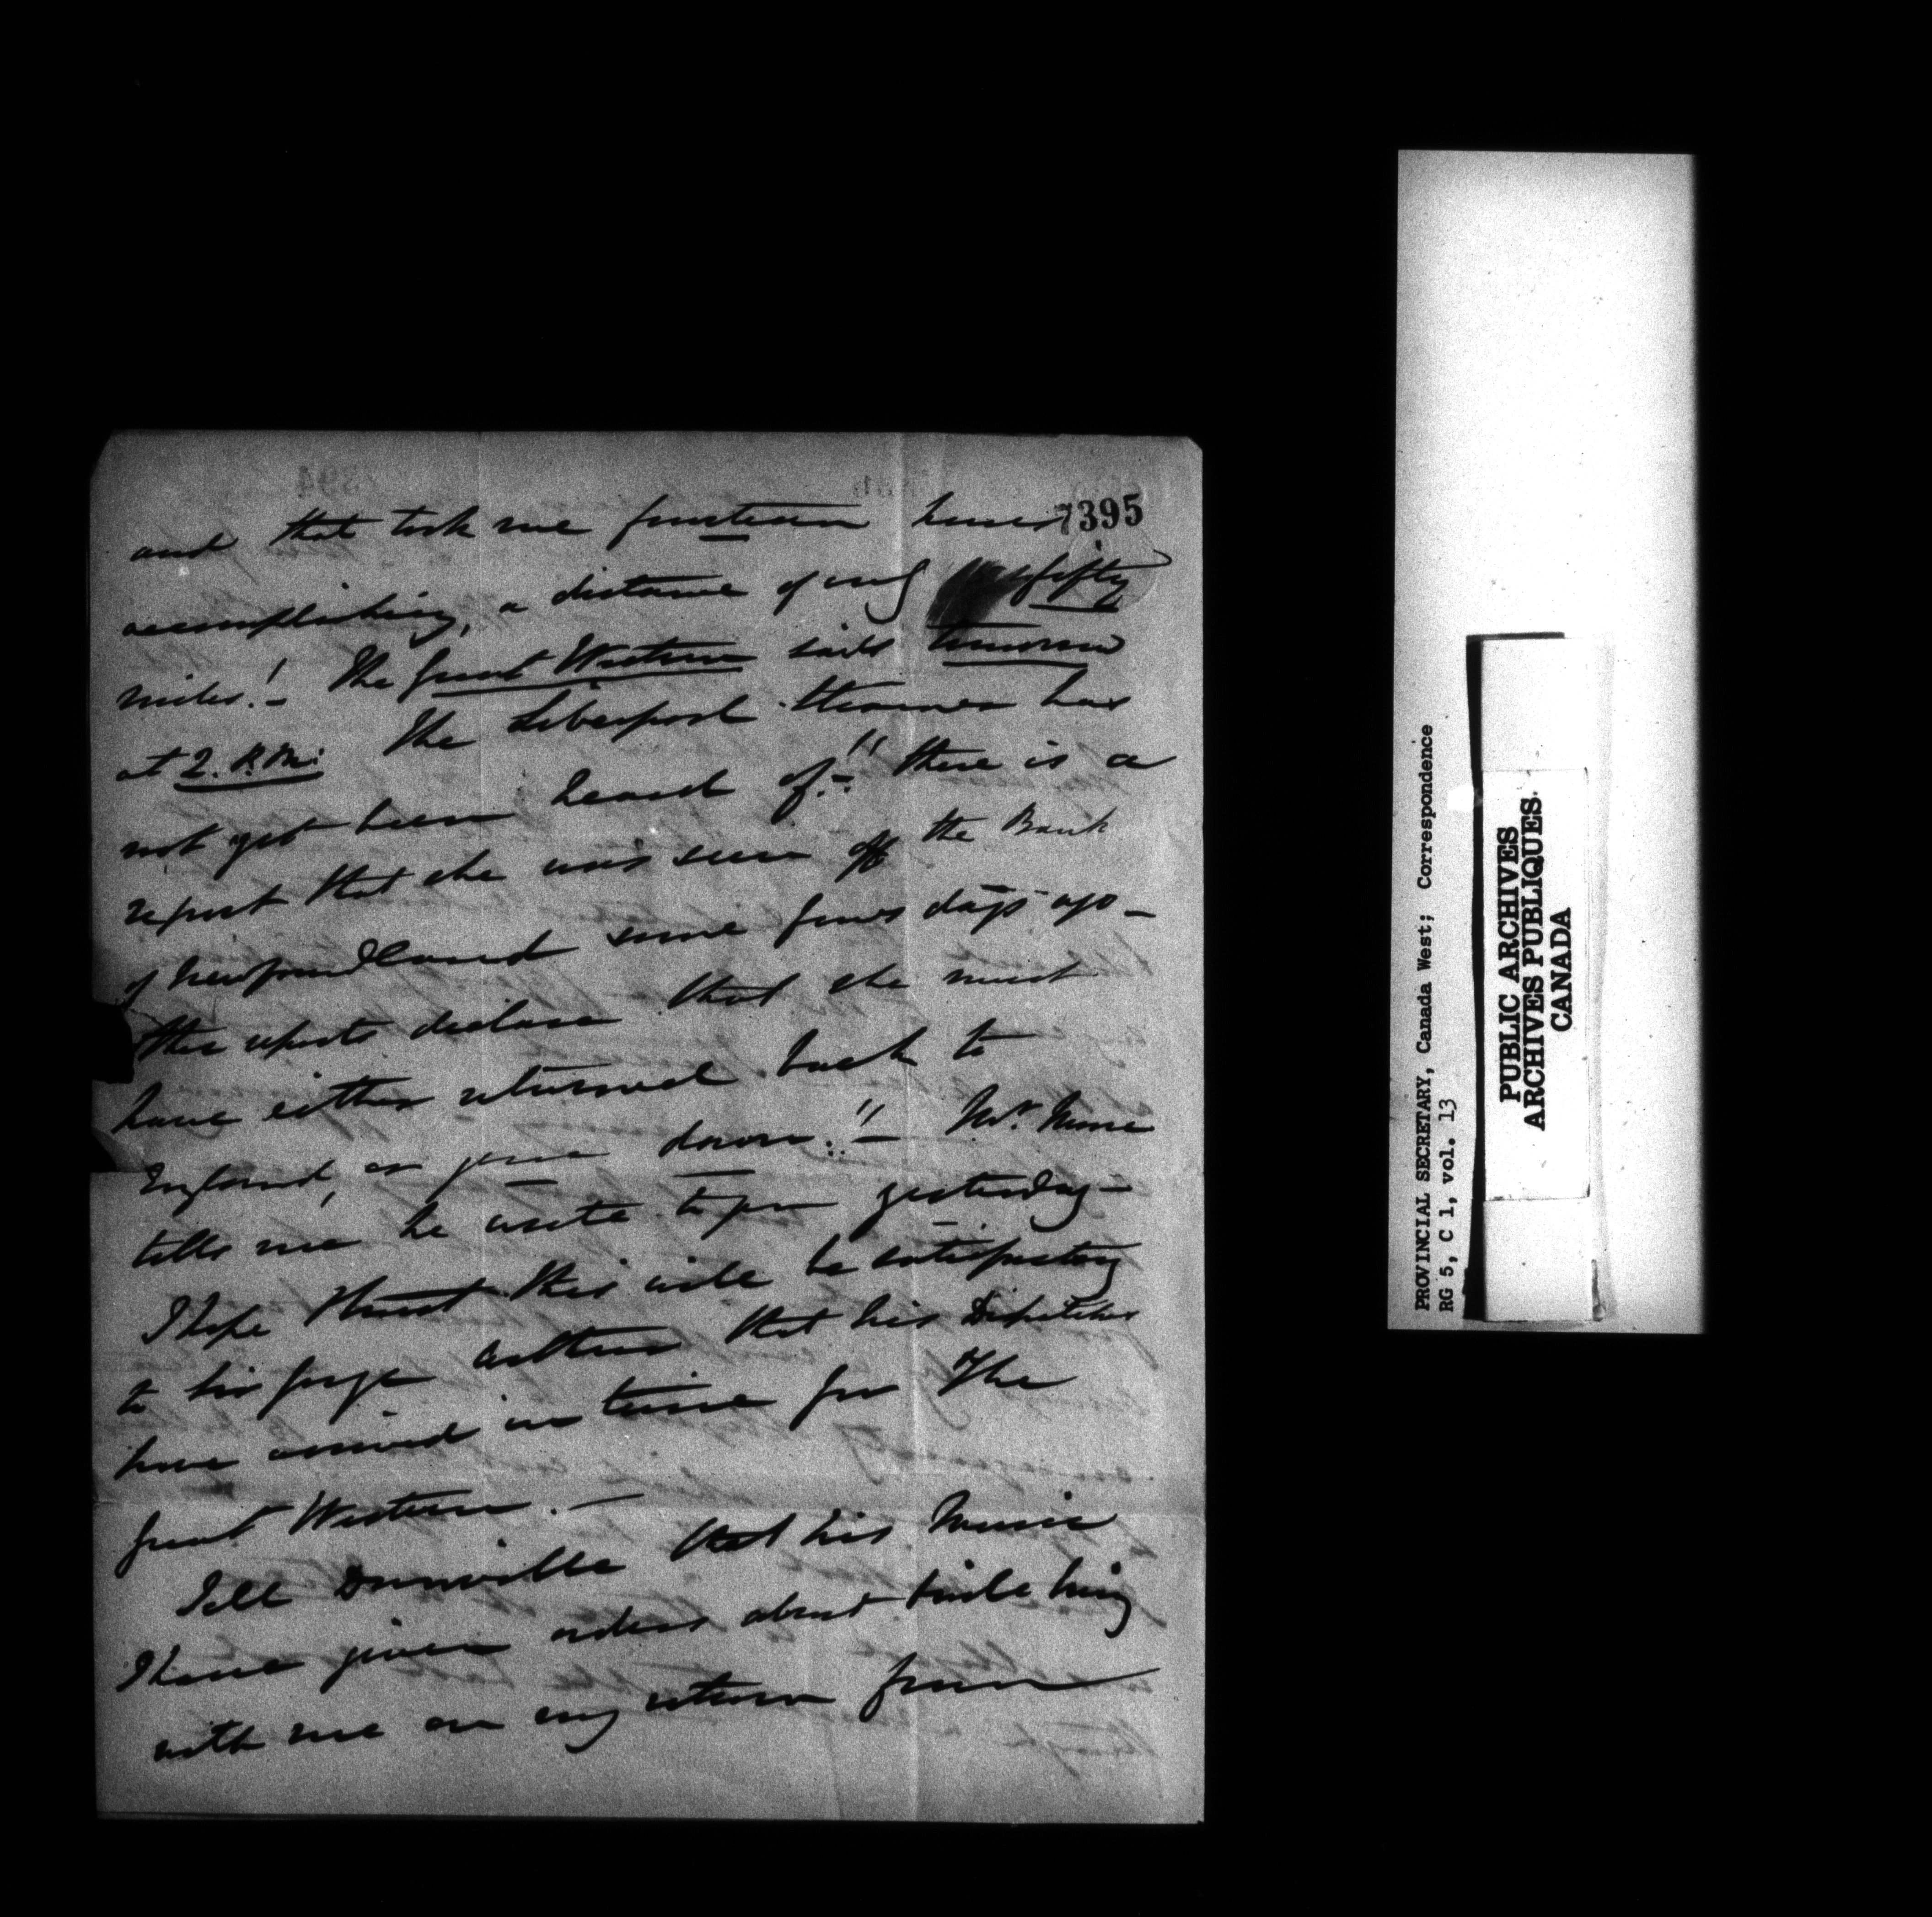 7395
and that took me fourteen hours
accomplishing, a distance of only fifty
miles! - The Great Western sails tomorrow
at 2. P.M: The Liverpool Steamer has
not yet been heard of - !! there is a
report that she was seen off the Bank
of Newfoundland some few days ago -
this reports declare that she must
have either returned back to
England, or gone down. !! - Mr.
tells me he wrote to you yesterday -
I hope this will be satisfactory
to Sir George Arthur that his Dispatches
have arrived in time for The
Great Western. -
Tell that his Music
I have given orders about & will bring
with me on my return from
PROVINCIAL SECRETARY, Canada West; Correspondence
RG 5, C 1, vol. 13
PUBLIC ARCHIVES
ARCHIVES PUBLIQUES
CANADA